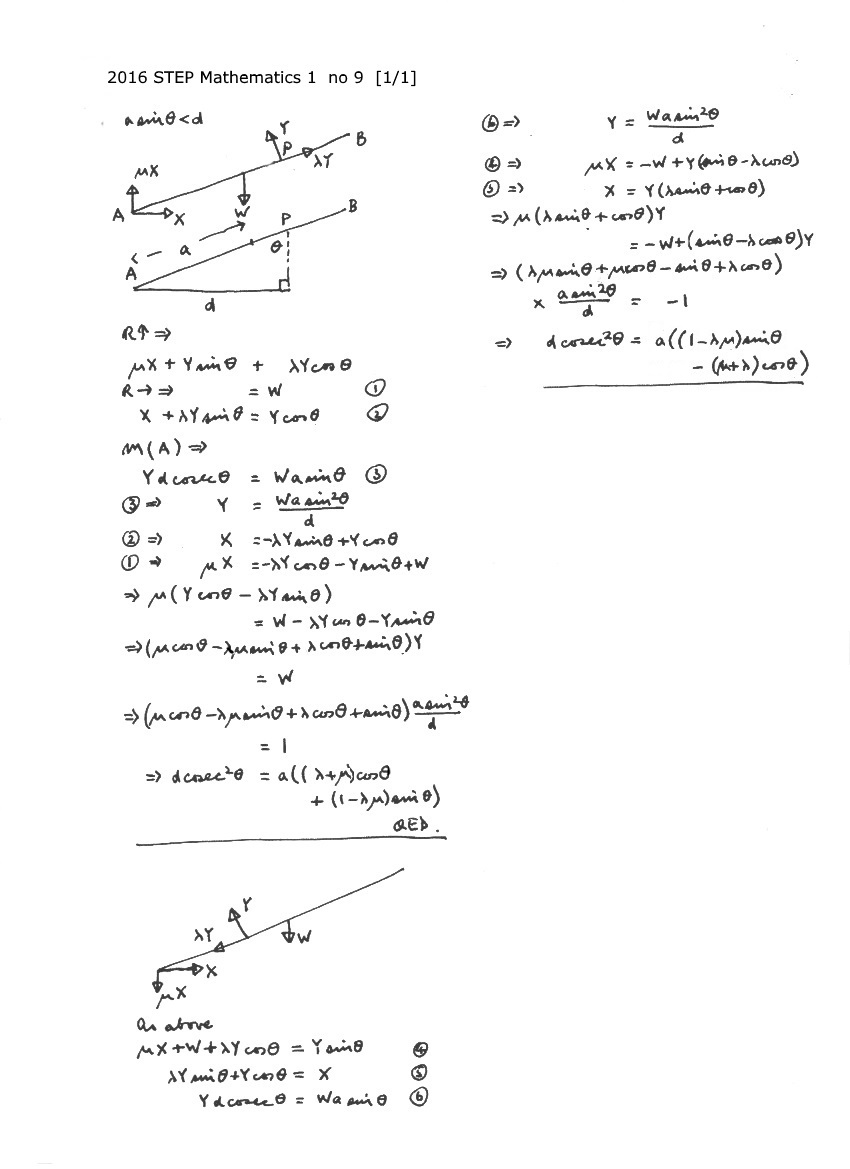 2016 STEP Mathematics 1 no 9 [1/1]
a sinθ < d
Y
P
B
λY
μX
A
X
W
B
P
a
θ
A
d
R↑ ⇒
μX + Y sinθ + λY cosθ
R→ ⇒ = W ①
X + λY sinθ = Y cosθ ②
M(A) ⇒
Y d cosecθ = W a sinθ ③
③ ⇒ Y = W a sin²θ / d
② ⇒ X = -λY sinθ + Y cosθ
① ⇒ μX = -λY cosθ - Y sinθ + W
⇒ μ(Y cosθ - λY sinθ)
= W - λY cosθ - Y sinθ
⇒ (μ cosθ - λμ sinθ + λ cosθ + sinθ)Y
= W
⇒ (μ cosθ - λμ sinθ + λ cosθ + sinθ) a sin²θ / d
= 1
⇒ d cosec²θ = a((λ+μ)cosθ
+ (1-λμ) sinθ)
QED.
Y
λY
W
X
μX
As above
μX + W + λY cosθ = Y sinθ ④
λY sinθ + Y cosθ = X ⑤
Y d cosecθ = W a sinθ ⑥
⑥ ⇒ Y = W a sin²θ / d
④ ⇒ μX = -W + Y(sinθ - λcosθ)
⑤ ⇒ X = Y(λsinθ + cosθ)
⇒ μ(λsinθ + cosθ)Y
= -W + (sinθ - λcosθ)Y
⇒ (λμsinθ + μcosθ - sinθ + λcosθ)
× a sin²θ / d = -1
⇒ d cosec²θ = a((1-λμ)sinθ
- (μ+λ)cosθ)